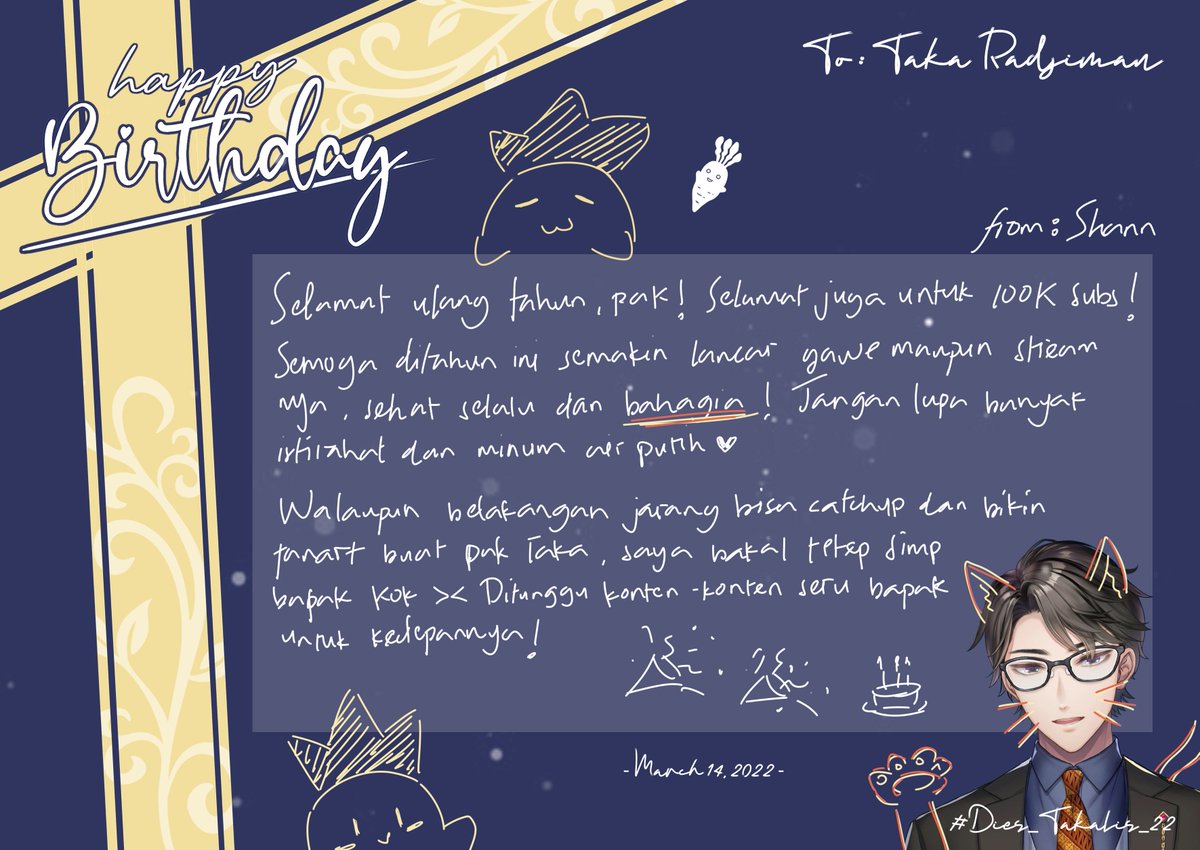 happy
Birthday
To: Taka Radjiman
from: Shann
Selamat ulang tahun, pak! Selamat juga untuk 100K subs!
Semoga ditahun ini semakin lancar gawe maupun stream
nya, sehat selalu dan bahagia! Jangan lupa banyak
istirahat dan minum air putih ♥
Walaupun belakangan jarang bisa catchup dan bikin
fanart buat pak Taka, saya bakal tetep simp
bapak kok >< Ditunggu konten-konten seru bapak
untuk kedepannya!
-March 14, 2022-
#Dies_Takalis_22